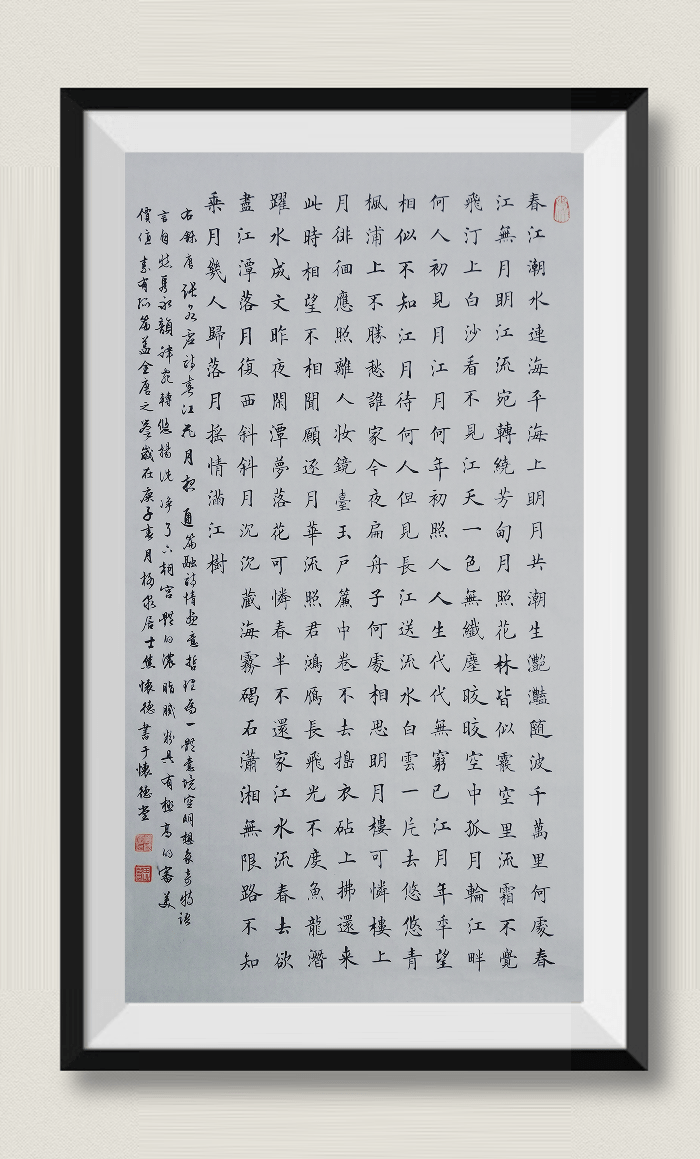 春江潮水連海平海上明月共潮生灔灩随波千萬里何處春
江無月明江流宛轉繞芳甸月照花林皆似霰空里流霜不覺
飛汀上白沙看不見江天一色無纖塵皎皎空中孤月輪江畔
何人初見月江月何年初照人人生代代無窮已江月年年望
相似不知江月待何人但見長江送流水白雲一片去悠悠青
楓浦上不勝愁誰家今夜扁舟子何處相思明月樓可憐樓上
月徘徊應照離人妝鏡臺玉戶簾中卷不去搗衣砧上拂還来
此時相望不相聞願逐月華流照君鴻鴈長飛光不度魚龍潛
躍水成文昨夜閑潭夢落花可憐春半不還家江水流春去欲
盡江潭落月復西斜斜月沉沉藏海霧碣石瀟湘無限路不知
乘月幾人歸落月摇情滿江樹
右録唐張若虚詩春江花月夜通篇融詩情畫意哲理為一體意境空明想象奇特語
言自然雋永韻律宛轉悠揚洗淨了六朝宫體的濃脂膩粉具有極高的審美
價值素有孤篇蓋全唐之譽歲在庚子春月梅居士焦懷德書于懷德堂